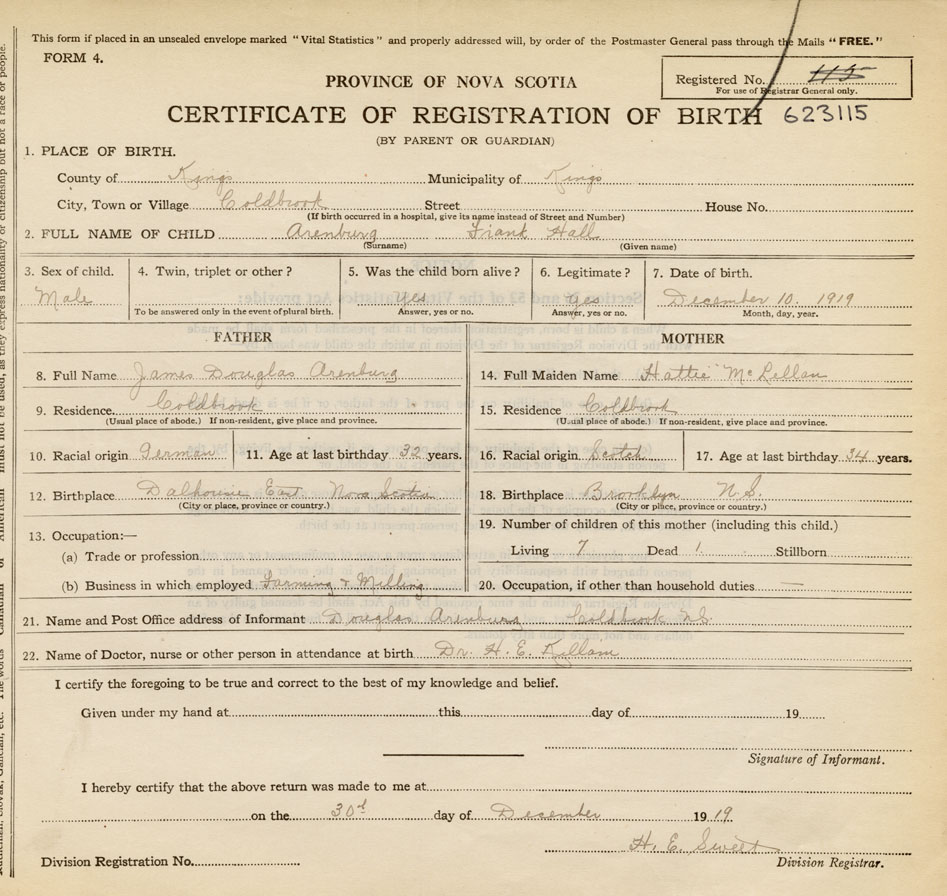 This form if placed in an unsealed envelope marked "Vital Statistics" and properly addressed will, by order of the Postmaster General pass through the Mails "FREE."
FORM 4.
PROVINCE OF NOVA SCOTIA
Registered No. 115
For use of Registrar General only.
CERTIFICATE OF REGISTRATION OF BIRTH 623115
(BY PARENT OR GUARDIAN)
1. PLACE OF BIRTH.
County of Kings Municipality of Kings
City, Town or Village Coldbrook Street House No.
(If birth occurred in a hospital, give its name instead of Street and Number)
2. FULL NAME OF CHILD Arenburg Frank Hall
(Surname) (Given name)
3. Sex of child. 4. Twin, triplet or other? 5. Was the child born alive? 6. Legitimate? 7. Date of birth.
Male Yes Yes December 10. 1919
To be answered only in the event of plural birth. Answer, yes or no. Answer, yes or no. Month, day, year.
FATHER MOTHER
8. Full Name James Douglas Arenburg 14. Full Maiden Name Hattie McLellan
9. Residence. Coldbrook 15. Residence Coldbrook
(Usual place of abode.) If non-resident, give place and province. (Usual place of abode.) If non-resident, give place and province.
10. Racial origin German 11. Age at last birthday 32 years. 16. Racial origin Scotch 17. Age at last birthday 34 years.
12. Birthplace Dalhousie East Nova Scotia 18. Birthplace Brooklyn N.S.
(City or place, province or country.) (City or place, province or country.)
13. Occupation:— 19. Number of children of this mother (including this child.)
(a) Trade or profession Living 7 Dead 1 Stillborn
(b) Business in which employed Farming & Milling 20. Occupation, if other than household duties —
21. Name and Post Office address of Informant Douglas Arenburg Coldbrook N.S.
22. Name of Doctor, nurse or other person in attendance at birth Dr. H. E. Killam
I certify the foregoing to be true and correct to the best of my knowledge and belief.
Given under my hand at this day of 19
Signature of Informant.
I hereby certify that the above return was made to me at
on the 30d day of December 1919.
H. E. Sweet
Division Registration No. Division Registrar.